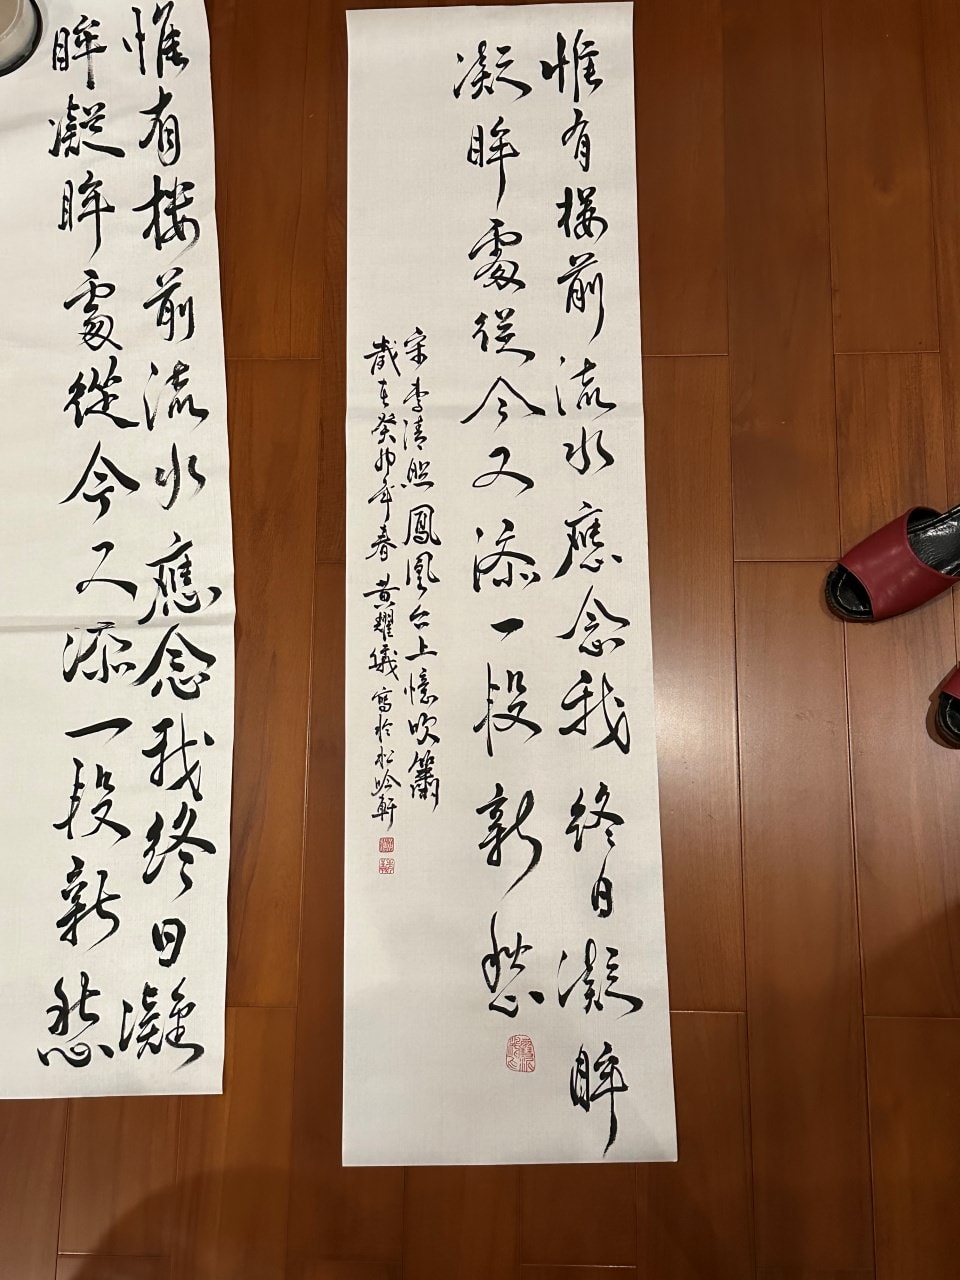 惟有樓前流水應念我終日凝眸
凝眸處從今又添一段新愁
宋李清照鳳凰台上憶吹簫
歲在癸卯年春黃耀儀寫於松吟軒
惟有樓前流水應念我終日凝
眸凝眸處從今又添一段新愁